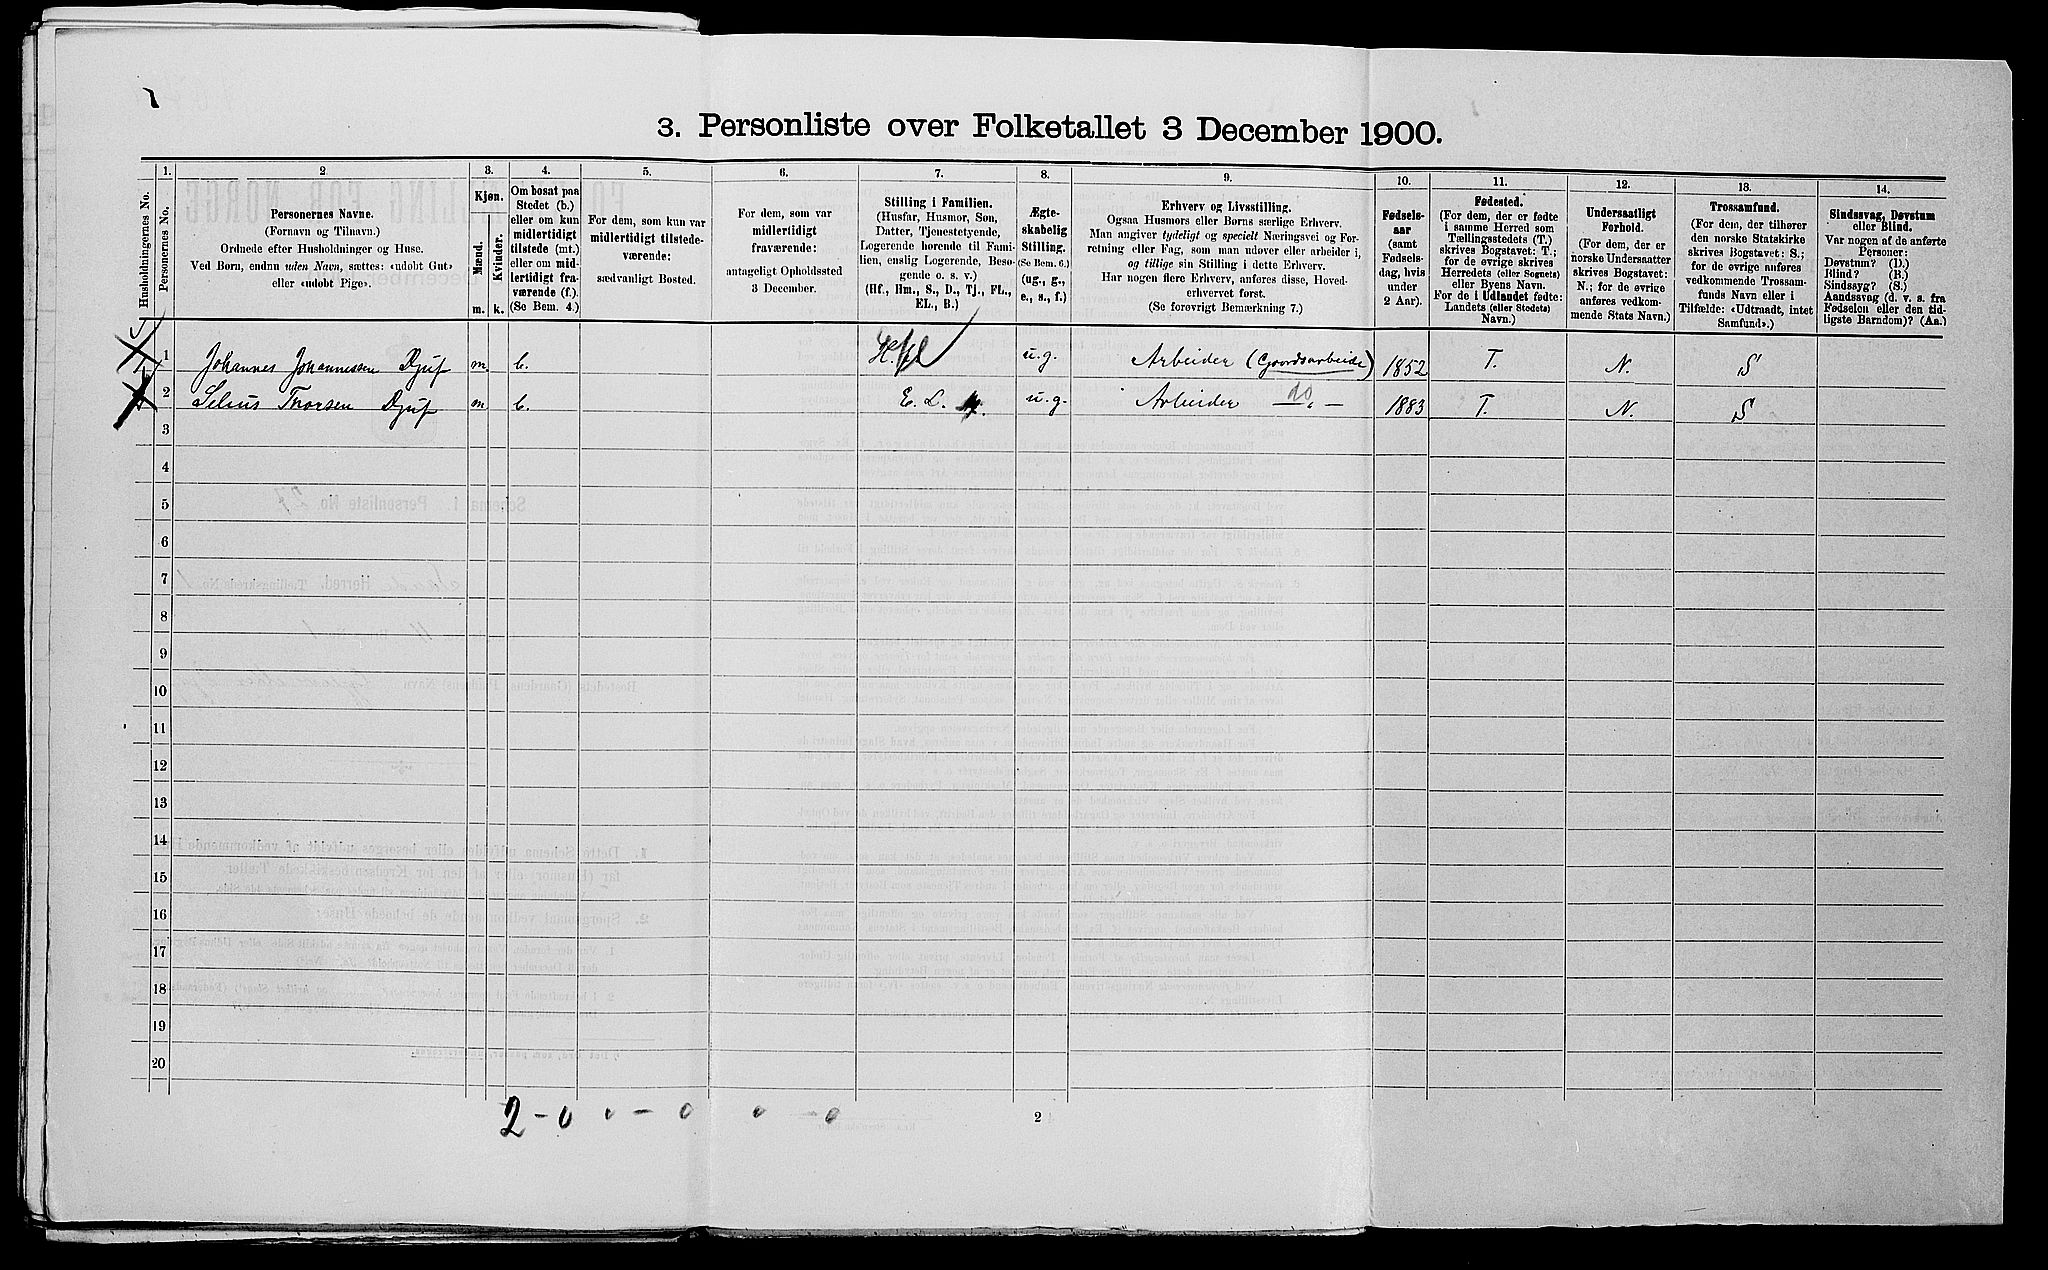 3. Personliste over Folketallet 3 December 1900.
1. 2 3. 4. 5. 6. 7. 8. 9. 10. 11. 12. 13. 14.
Husholdningernes No.
Personernes No.
Personernes Navne.
(Fornavn og Tilnavn.)
Ordnede efter Husholdninger og Huse.
Ved Børn, endnu uden Navn, sættes: «udøbt Gut»
eller «udøbt Pige».
Kjøn.
Mænd.
Kvinder.
m. k.
Om bosat paa
Stedet (b.)
eller om kun
midlertidigt
tilstede (mt.)
eller om mid-
lertidigt fra-
værende (f.).
(Se Bem. 4.)
For dem, som kun var
midlertidigt tilstede-
værende:
sædvanligt Bosted.
For dem, som var
midlertidigt
fraværende:
antageligt Opholdssted
3 December.
Stilling i Familien.
(Husfar, Husmor, Søn,
Datter, Tjenestetyende,
Logerende hørende til Fami-
lien, enslig Logerende, Besø-
gende o. s. v.)
(Hf., Hm., S., D., Tj., FL.,
EL., B.)
Ægte-
skabelig
Stilling.
(Se Bem. 6.)
(ug., g.,
e., s., f.)
Erhverv og Livsstilling.
Ogsaa Husmors eller Børns særlige Erhverv.
Man angiver tydeligt og specielt Næringsvei og For-
retning eller Fag, som man udøver eller arbeider i,
og tillige sin Stilling i dette Erhverv.
Har nogen flere Erhverv, anføres disse, Hoved-
erhvervet først.
(Se forøvrigt Bemærkning 7.)
Fødsels-
aar
(samt
Fødsels-
dag, hvis
under
2 Aar).
Fødested.
(For dem, der er fødte
i samme Herred som
Tællingsstedets (T.)
skrives Bogstavet: T.;
for de øvrige skrives
Herredets (eller Sognets)
eller Byens Navn.
For de i Udlandet fødte:
Landets (eller Stedets)
Navn.)
Undersaatligt
Forhold.
(For dem, der er
norske Undersaatter
skrives Bogstavet:
N.; for de øvrige
anføres vedkom-
mende Stats Navn.)
Trossamfund.
(For dem, der tilhører
den norske Statskirke
skrives Bogstavet: S.;
for de øvrige anføres
vedkommende Trossam-
funds Navn eller i
Tilfælde: «Udtraadt, intet
Samfund».)
Sindssvag, Døvstum
eller Blind.
Var nogen af de anførte
Personer:
Døvstum? (D.)
Blind? (B.)
Sindssyg? (S.)
Aandssvag (d. v. s. fra
Fødselen eller den tid-
ligste Barndom)? (Aa.)
1 Johannes Johannessen Djuf m. b. u.g. Arbeider (Gaardsarbeide) 1852 T. N. S
2 Selius Thorsen Djuf m b. E. L. u.g. Arbeider do 1883 T. N. S
3
4
5
6
7
8
9
10
11
12
13
14
15
16
17
18
19
20
2 - 0 0 - 0 0 - 0
2